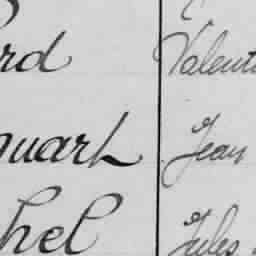 rd Valent
quart Jean
hel Jules